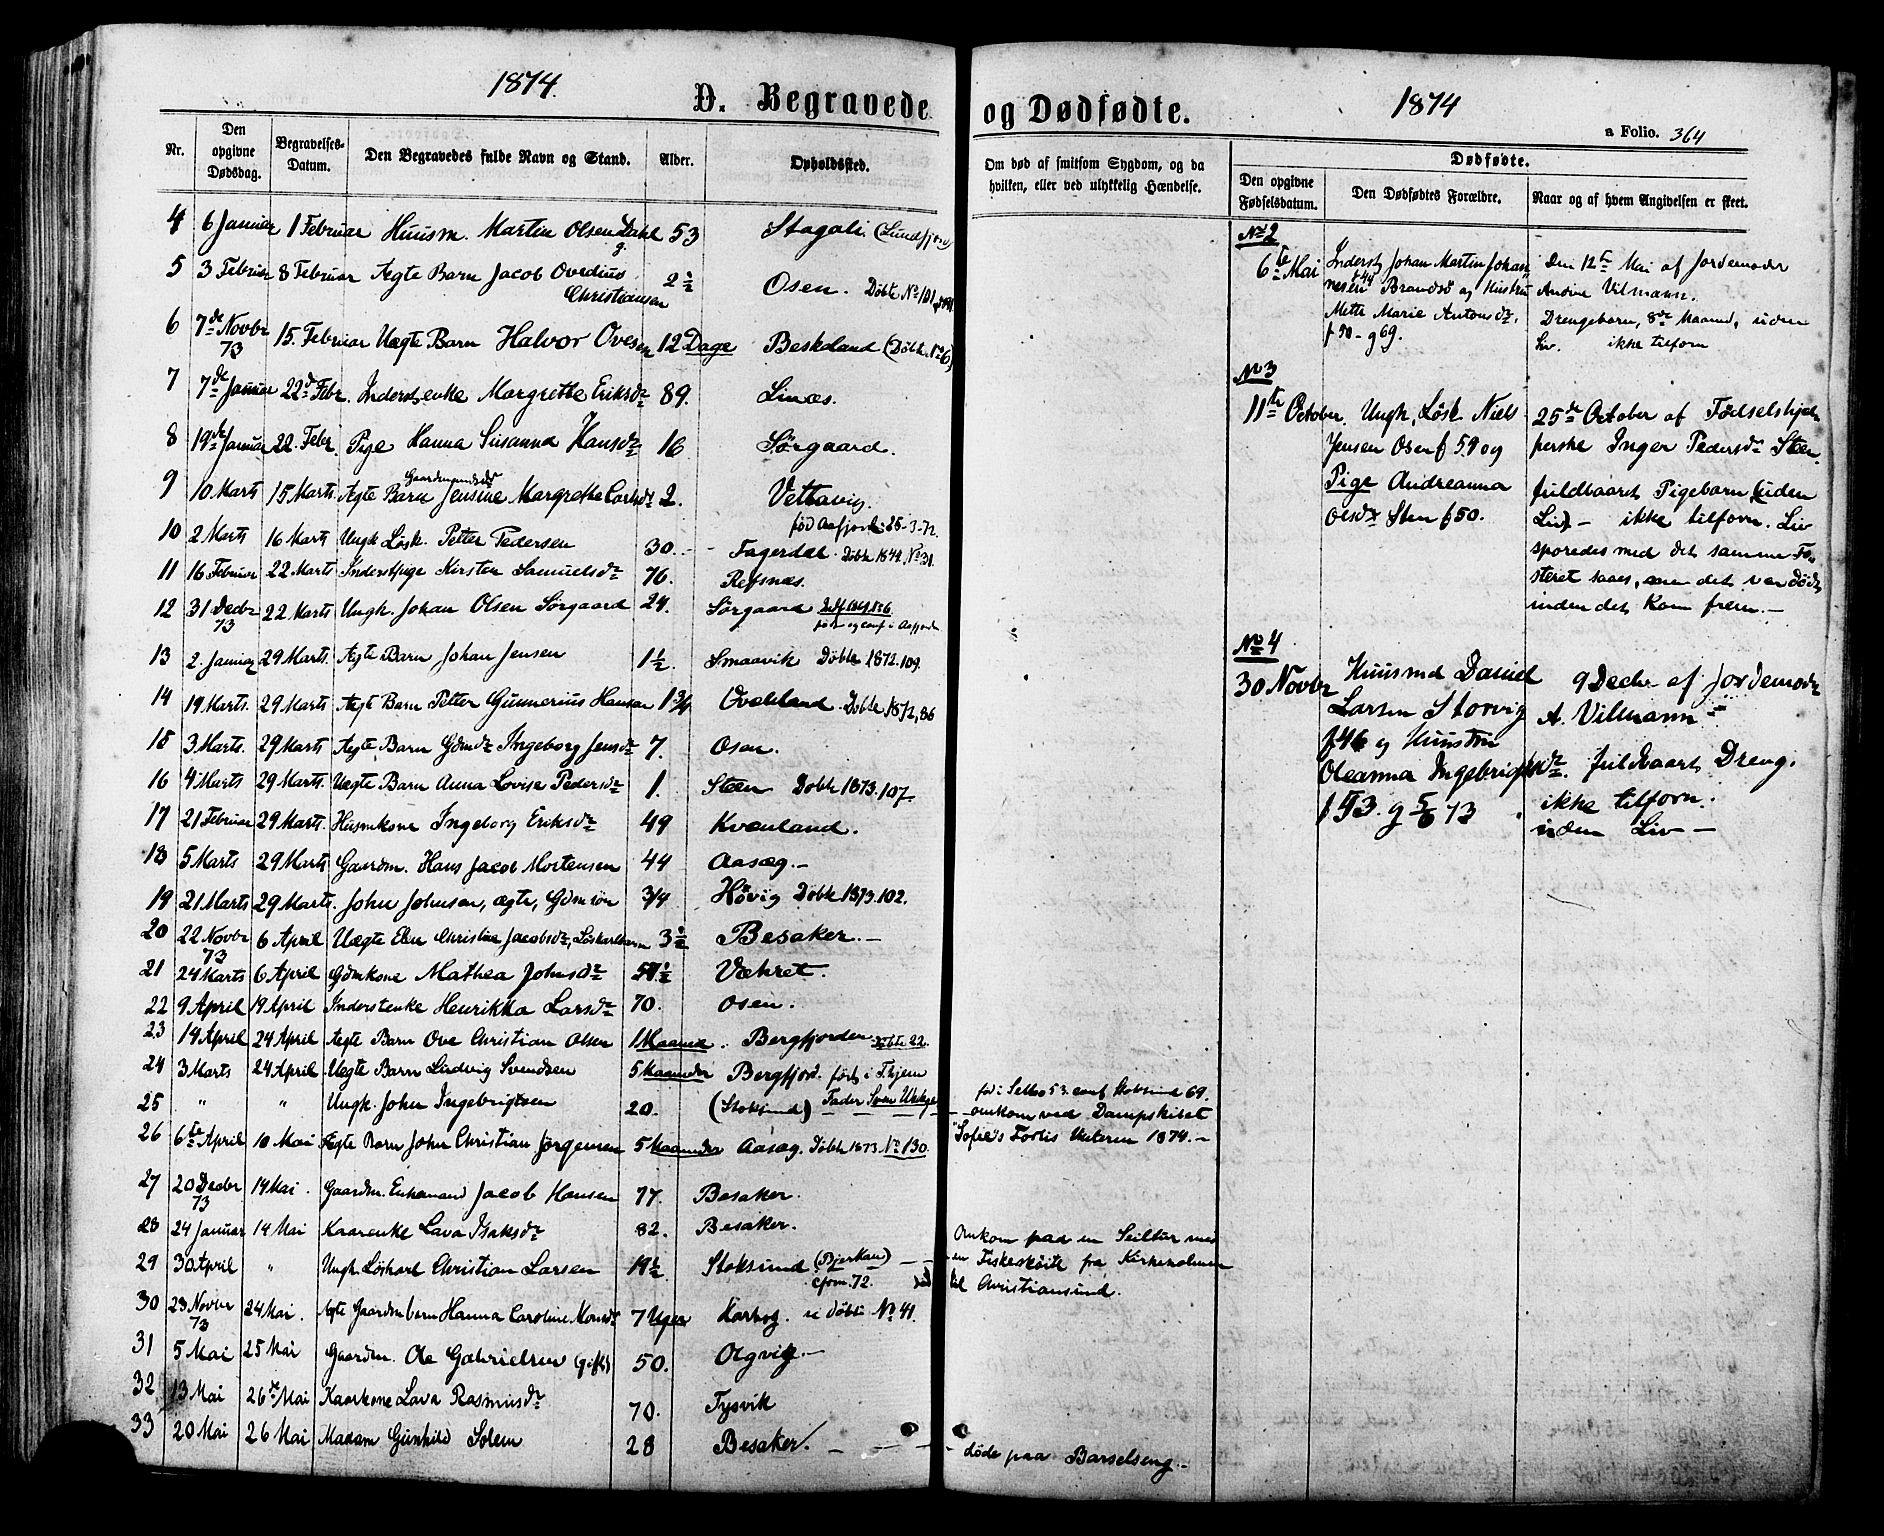 1874.
D. Begravede
og Dødfødte.
1874
a Folio. 364
Nr.
Den opgivne Dødsdag.
Begravelses-Datum.
Den Begravedes fulde Navn og Stand.
Alder.
Opholdssted.
Om død af smitsom Sygdom, og da hvilken, eller ved ulykkelig Hændelse.
Dødfødte.
Den opgivne Fødselsdatum.
Den Dødfødtes Forældre.
Naar og af hvem Angivelsen er skeet.
4 6 Januar 1 Februar Huusm. Martin Olsen Dahl 53 Stagali
5 3 Februar 8 Februar Ægte Barn Jacob Ovedius Christiansen 2½ Osen. Døbte No 101
6 7de Novbr 73 15. Februar Uægte Barn Halvor Ovesen 12 Dage Beskeland (Døbte No 6)
7 7de Januar 22de Febr. Inderstenke Margrethe Eriksdr 89. Linæs.
8 19de Januar 22. Febr. Pige Hanna Susanna Hansdr 16 Sørgaard.
9 10 Marts 15 Marts Ægte Barn Gaardmandsdr Jensine Margrethe Carlsdr 2. Vettavig. fød Aafjord 25-3-72.
10 2 Marts 16 Marts Ungk. Løsk. Petter Pedersen 30. Fagerdal. Døbte 1844. No 31.
11 16 Februar 22 Marts Inderstpige Kirsten Samuelsdr 76. Refsnæs.
12 31 Decbr 73 22 Marts Ungk. Johan Olsen Sørgaard 24. Sørgaard født og conf. i Aafjorden
13 2. Januar 29 Marts. Ægte Barn Johan Jensen 1½. Smaavik Døbte 1872.109.
14 19 Marts. 29 Marts Ægte Barn Petter Gunnerius Hansen 1¾ Døbte 1872,86
15 3 Marts. 29 Marts Ægte Barn Gdmdr Ingeborg Jensdr 7. Osen.
16 4 Marts 29 Marts. Uægte Barn Anna Lovise Pedersdr 1. Steen Døbte 1873.107.
17 21 Februar 29 Marts. Husmkone Ingeborg Eriksdr 49 Kvenland.
18 5 Marts 29 Marts Gaardm. Hans Jacob Mortensen 44 Aasæg.
19 21 Marts 29 Marts. John Johnsen, ægte, Gdmsøn ¾ Høvig Døbte 1873.102.
20 22 Novbr 73 6 April Uægte Elen Christine Jacobsdr, Løskarlbarn 3½ Besaker.
21 24 Marts 6 April Gdmkone Mathea Johnsdr 51½ Væhret.
22 9 April 19 April Inderstenke Henrikka Larsdr 70. Osen.
23 14 April 24 April Ægte Barn Ove Christian Olsen 1 Maaned. Bergfjorden. Døbte 22.
24 3 Marts 24 April Uægte Barn Lindvig Svendsen 5 Maaneder Bergfjord. født i Thjem Fader Sven
25 " " Ungk. John Ingebrigtsen 20. (Stoksund)
fød i Selbo 53. conf. Stoksund 69.
omkom ved Dampskibet
"Sofie"s Forlis Vinteren 1874.
26 6te April 10 Mai Ægte Barn John Christian Jørgensen 5 Maaneder Aasæg. Døbte 1873. No 130.
27 20 Decbr 73 14 Mai. Gaardm. Enkemand Jacob Hansen 77. Besaker.
28 24 Januar 14 Mai Kaarenke Lava Isaksdr 82. Besaker.
29 30 April " Ungk. Løskarl Christian Larsen 19½ Stoksund (Bjerkan) cfom. 72.
Omkom paa en Seiltur med
en Fiskeskøite fra Kirkeholmen
til Christiansund.
30 23 Novbr 73 24 Mai. Ægte Gaardmbarn Hanna Caroline Monsdr 7 Uger Harbog. Døbte No 41.
31 5 Mai 25 Mai Gaardm. Ole Gabrielsen (gift) 50. Olgvig.
32 13 Mai 26de Mai Kaarkone Lava Rasmusdr 70. Tysvik
33 20 Mai 26 Mai Madam Gunhild Solem 28 Besaker.
døde paa Barselseng.
No 2
6te Mai Inderst Johan Martin Johannesen f44 Brandsø og Hustru
Mette Marie Antonsdr.
f 50 - g 69.
Den 12te Mai af Jordemoder
Andrine Vilmann.
Drengebarn, 8de Maaned, uden
Liv. ikke tilforn
No 3
11te October. Ungk. Løsk. Niels
Jensen Osen f 59 og
Pige Andreanna
Olsdr Sten f 50.
25de October af Fødselshjælperske Inger Pedersdr Steen.
fuldbaaret Pigebarn (uden
Liv) - ikke tilforn. Liv
sporedes med det samme Fosteret saaes, men det var dødt
inden det kom frem.
No 4
30 Novbr Huusmd Daniel
Larsen Storvig
f 46 og Huustru
Oleanna Ingebrigtsdr.
f 53. g 5/6 73
9 Decbr af Jordemoder
A. Vilmann
fuldbaaret Dreng.
ikke tilforn.
uden Liv